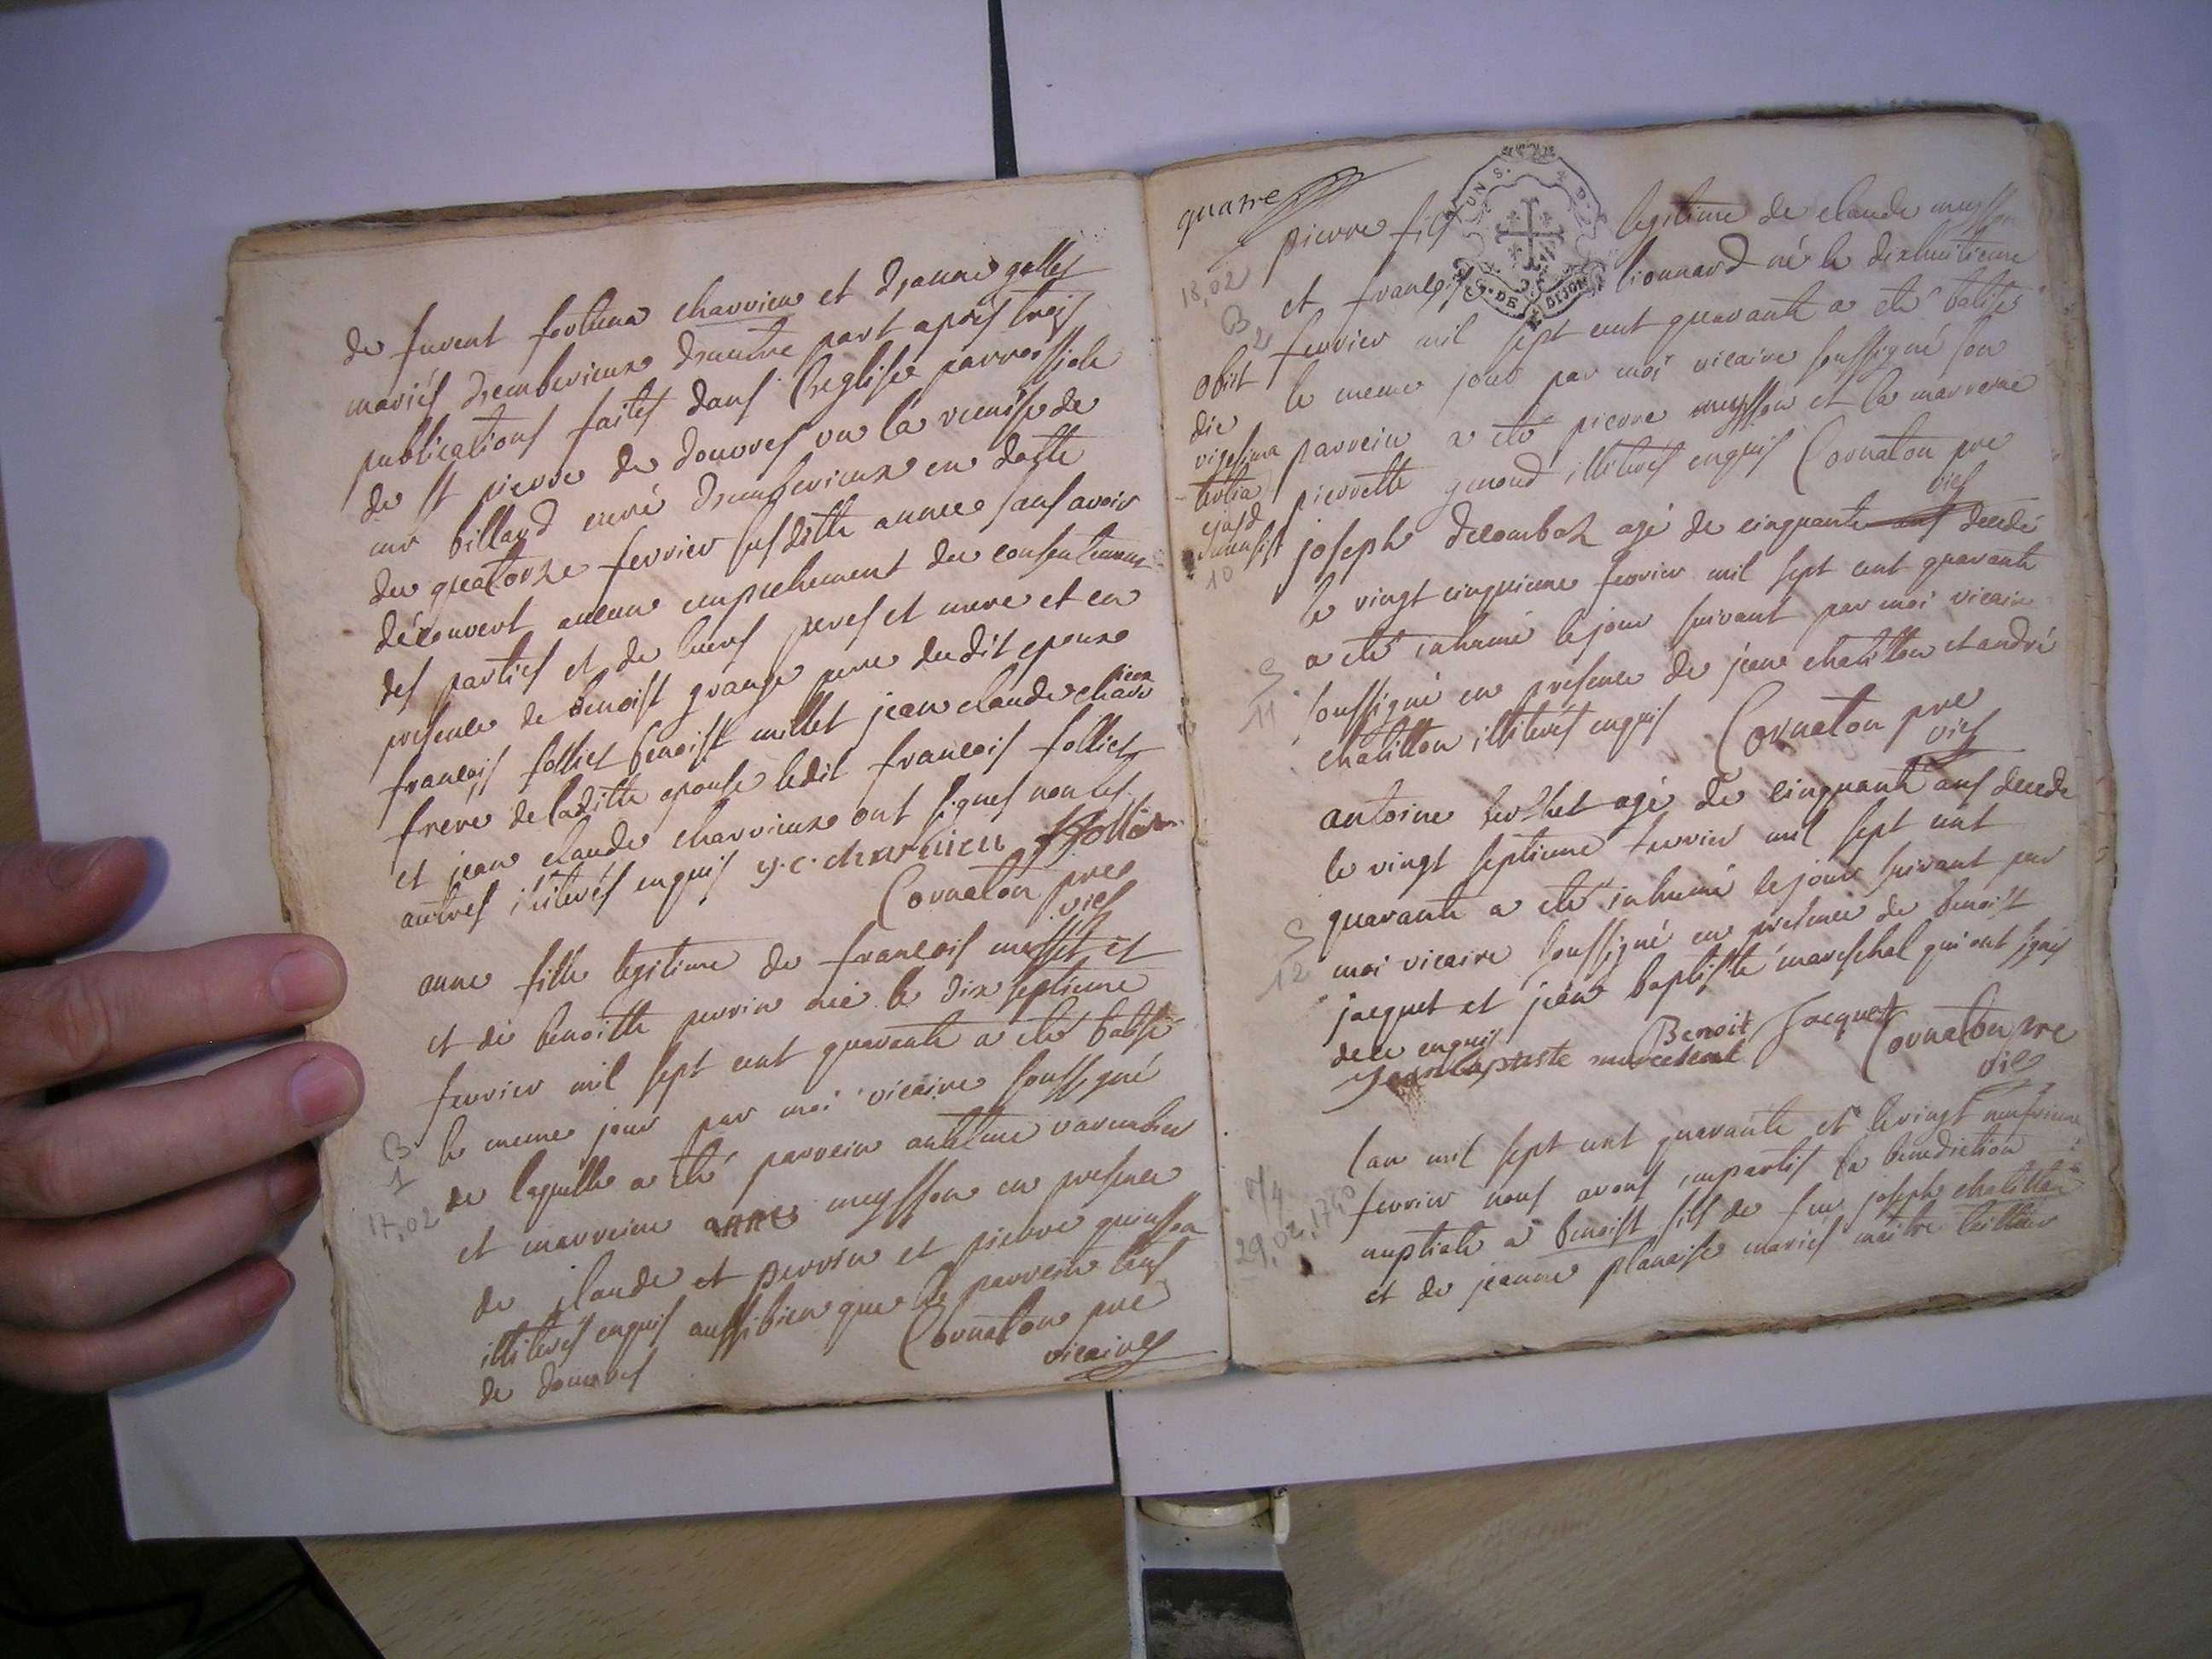 de furent fortuna charvieux et Jeanne gallet
mariés d'emberieux d'autre part après trois
publications faites dans l'eglise parroissiale
de st pierre de douvres vu la remise de
mr billard curé d'emberieux en datte
du quatorze fevrier susditte année sans avoir
découvert aucun empechement du consentement
des parties et de leurs peres et mere et en
presence de benoist grange pere dudit epoux
francois folliet benoist millet jean claude charvieux
frere de laditte epouse ledit francois folliet
et jean claude charvieux ont signes non les
autres illiterés enquis j.c. charvieu f folliet
Cornaton pre
vic
anne fille legitime de francois millet et
et de benoitte perrin née le dix septieme
fevrier mil sept cent quarante a eté batisé
le meme jour par moi vicaire soussigné
de laquelle a été parrein antelme varembier
et marreine anne meysson en presence
de claude et perrin et pierre quinson
illiterés enquis aussi bien que le parrein tous
de douvres
Cornaton pre
vicaire
B
1
17,02
quatre
S. DE DIJON
pierre fils legitime de claude meysson
et francoise lionnard né le dixhuitieme
fevrier mil sept cent quarante a eté batisé
le meme jour par moi vicaire soussigné son
parrein a eté pierre meysson et la marreine
pierrette genoud illiterés enquis Cornaton pre
vic
18,02
B
2
obiit
die
vigesima
tertia
ejusd
mensis
10
joseph decomboz agé de cinquante ans decedé
le vingt cinquieme fevrier mil sept cent quarante
a eté inhumé le jour suivant par moi vicaire
soussigné en presence de jean chatillon et andré
chatillon illiterés enquis Cornaton pre
vic
S
11
antoine agé de cinquante ans decede
le vingt septieme fevrier mil sept cent
quarante a eté inhumé le jour suivant par
moi vicaire soussigné en presence de benoist
jacquet et jean baptiste mareschal qui ont signés
de ce enquis Benoit Jacquet
Jean baptiste marechal Cornaton pre
vic
S
12
l'an mil sept cent quarante et le vingt neufvieme
fevrier nous avons impartis la benediction
nuptiale a benoist fils de feu joseph chatillon
et de jeanne planaise mariés maitre tailleur
M4
29,02,1740